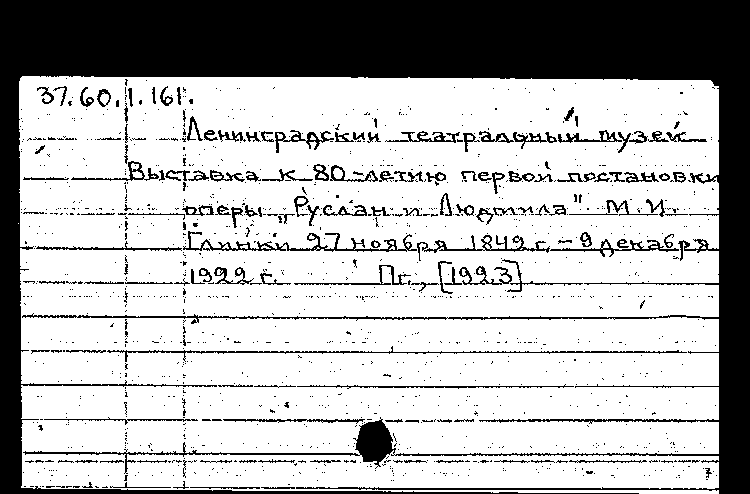 37.60.1.161.
Ленинградский театральный музей
Выставка к 80-летию первой постановки
оперы „Руслан и Людмила" М.И.
Глинки 27 ноября 1842 г. – 9 декабря
1922 г. Пг., [1923].